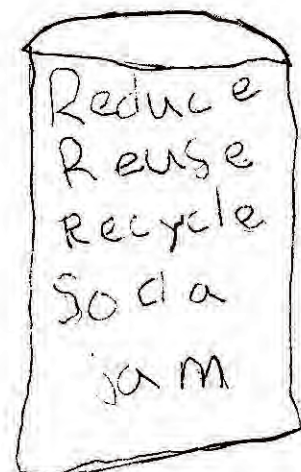 Reduce
Reuse
Recycle
Soda
jam